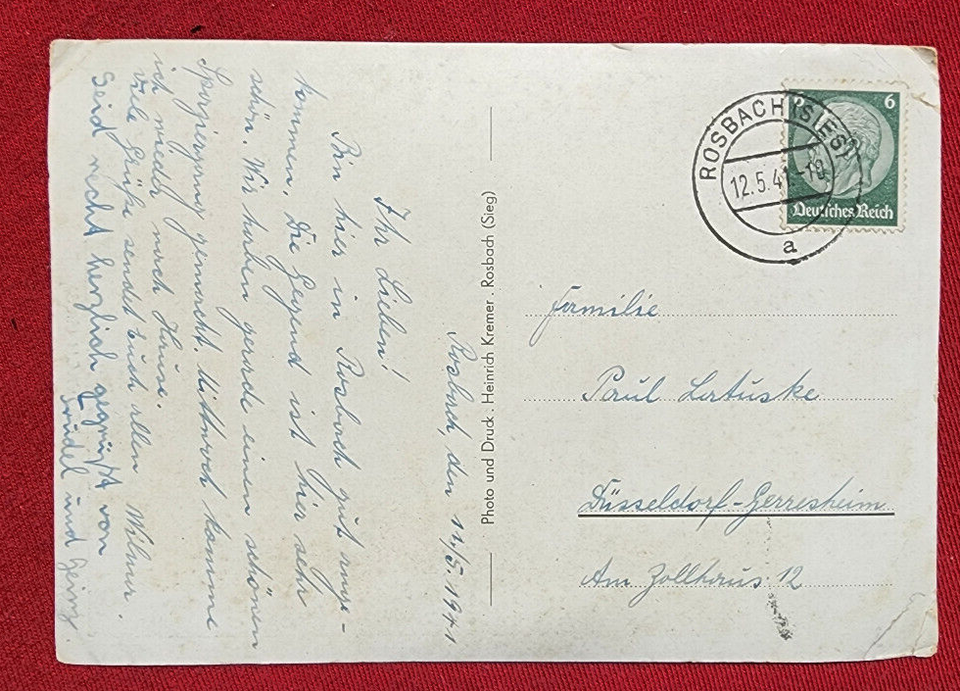 Rosbach, den 12/5.1941
Ihr Lieben!
Bin hier in Rosbach gut ange-
kommen. Die Gegend ist hier sehr
schön. Wir haben gerade einen schönen
Spaziergang gemacht. Mittwoch komme
ich wieder nach Hause.
Viele Grüße sendet Euch allen
Seid recht herzlich gegrüßt von
und
Photo und Druck . Heinrich Kremer . Rosbach (Sieg)
6
Deutsches Reich
ROSBACH (SIEG)
12.5.41-18
a
Familie
Paul Latuske
Düsseldorf-Gerresheim
Am Zollhaus 12